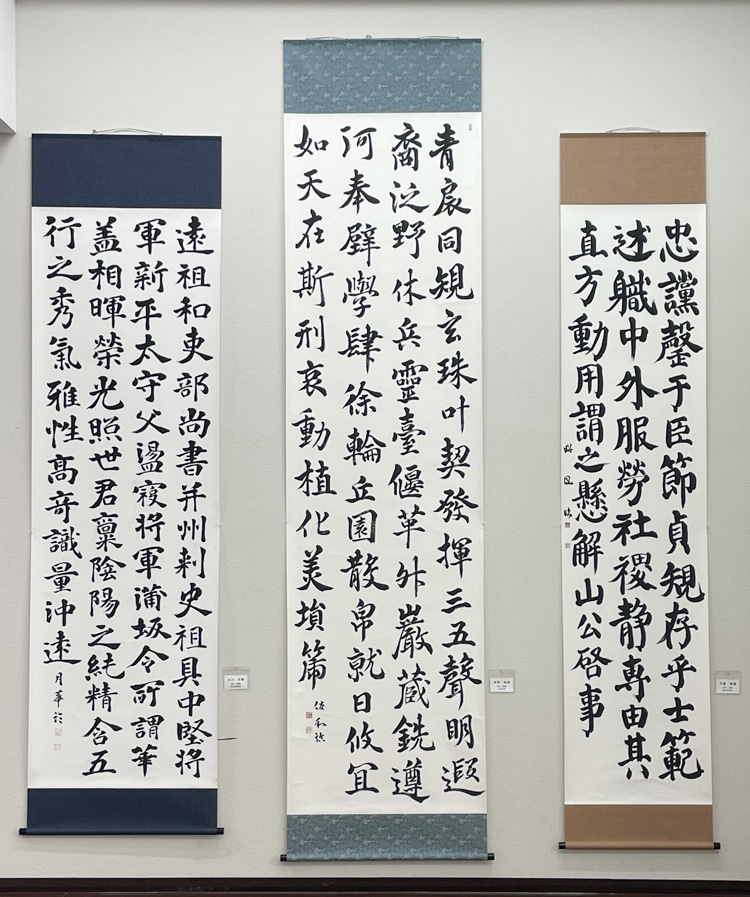 忠讜罄于臣節貞規存乎士範
述職中外服勞社稷静専由其
直方動用謂之懸解山公啓事
青扆同規玄珠叶契發揮三五聲明遐
裔泛野休兵靈臺偃革巖蔵銑遵
河奉璧學肆徐輪丘園散帛就日攸冝
如天在斯刑哀動植化美塤箎
遠祖和吏部尚書并州刺史祖具中堅将
軍新平太守父盪寇将軍蒲坂令所謂華
盖相暉榮光照世君稟陰陽之純精含五
行之秀氣雅性髙竒識量沖遠
月華臨